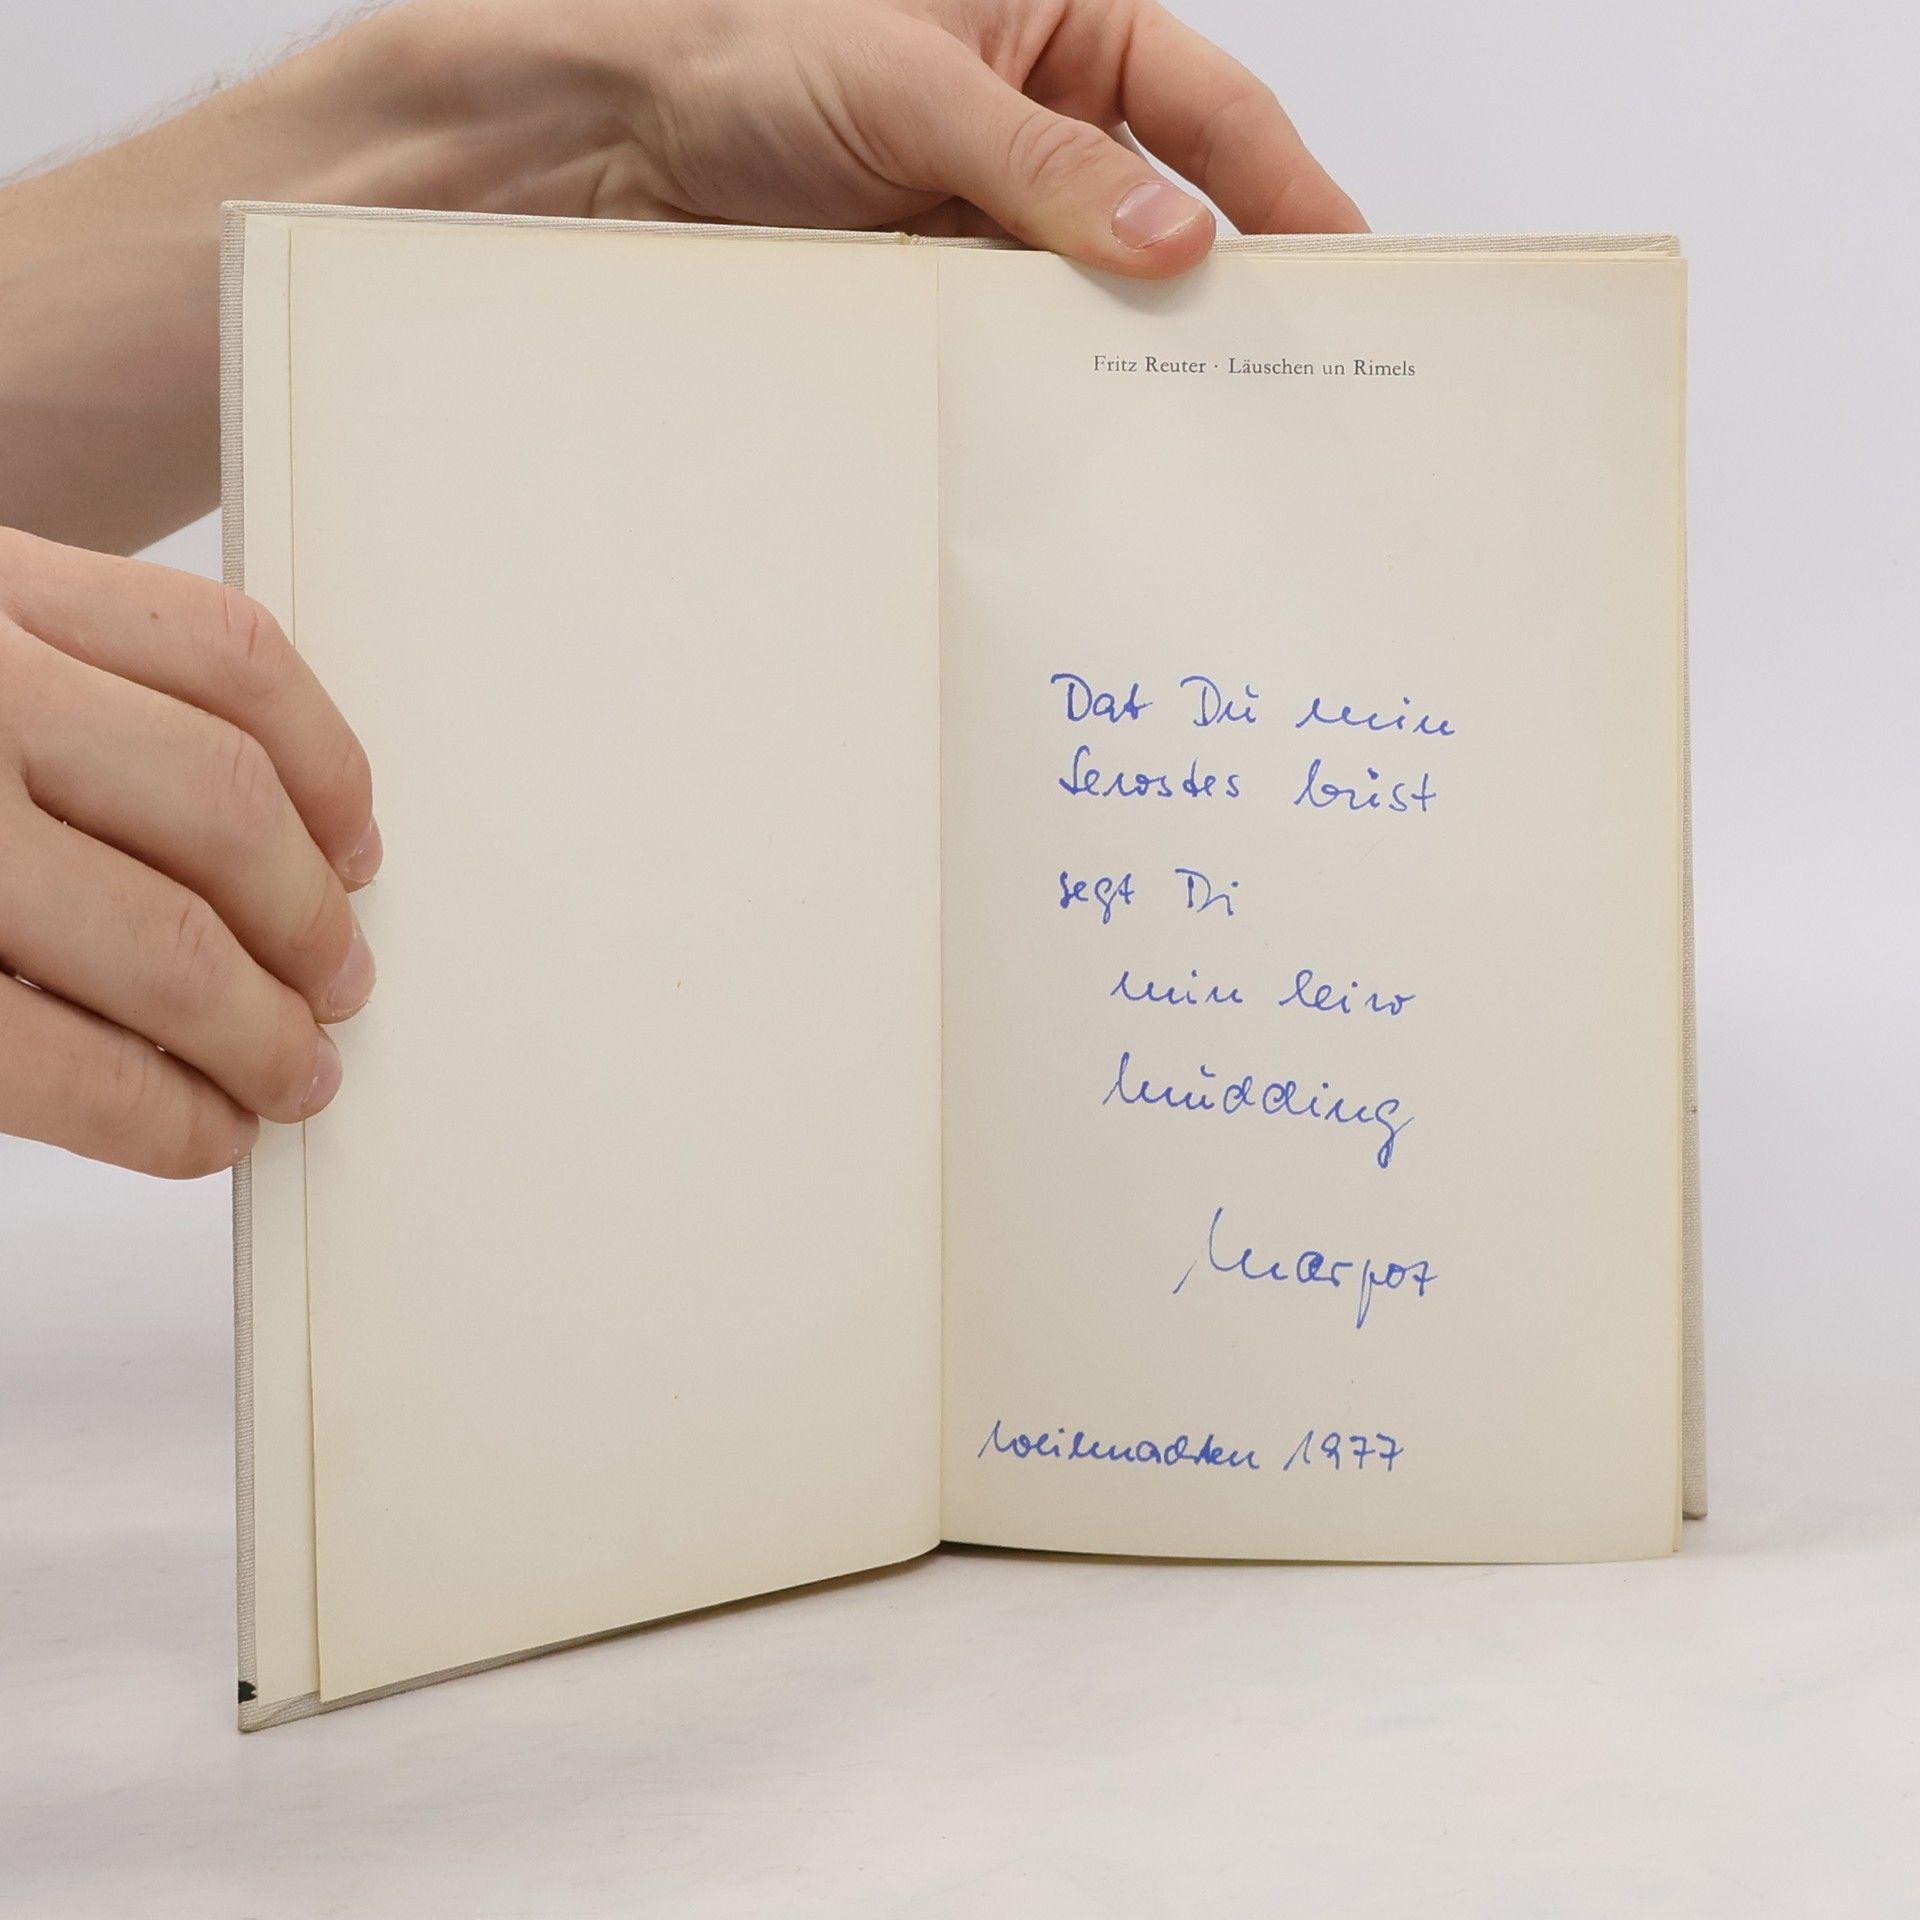 Fritz Reuter · Läuschen un Rimels
Dat Dü min
Lewstes büst
segt Di
min leiw
Müdding
Margot
Weihnachten 1977